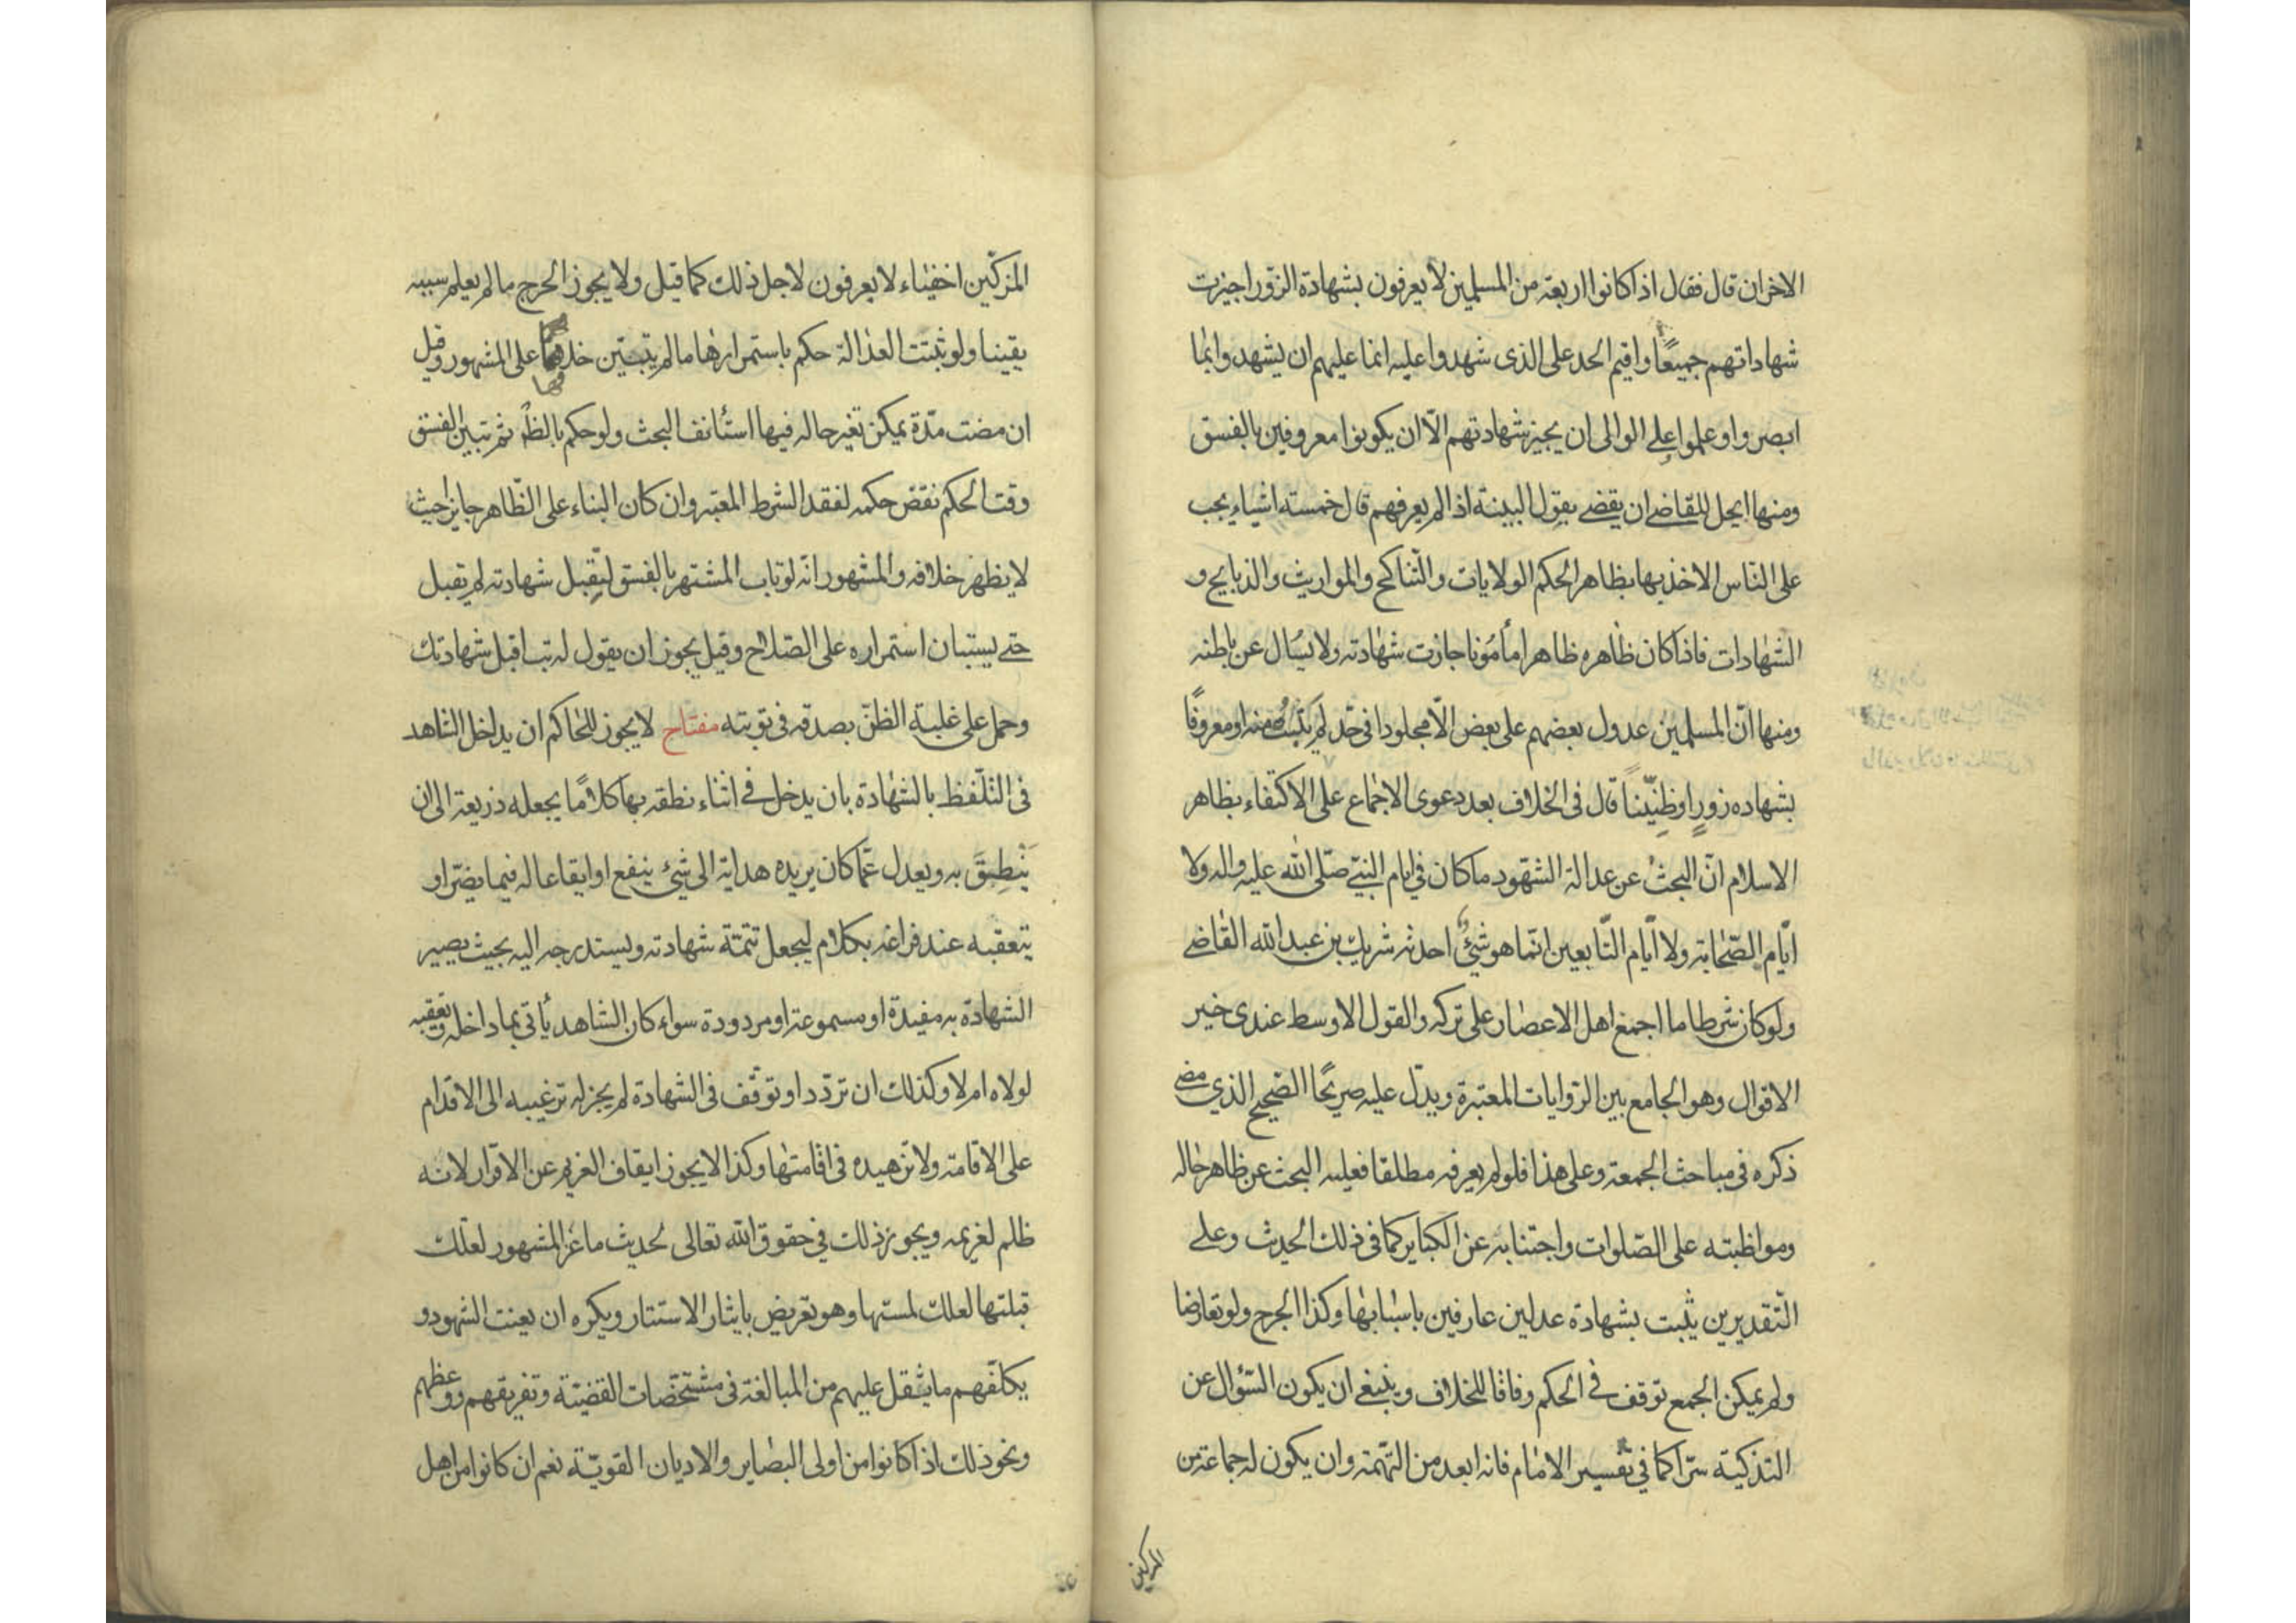 الاخران قال فقال اذا كانوا اربعة من المسلمين لا يعرفون بشهادة الزور اجيزت
شهاداتهم جميعًا واقيم الحد على الذى شهدوا عليه انما عليهم ان يشهدوا بما
ابصروا وعلموا وعلى الوالى ان يجيز شهادتهم الّا ان يكونوا معروفين بالفسق
ومنها ايحل للقاضى ان يقضى بقول البينة اذا لم يعرفهم قال خمسة اشياء يجب
على النّاس الاخذ بها بظاهر الحكم الولايات والتّناكح والمواريث والذبايح و
الشهادات فاذا كان ظاهره ظاهرا مأمونا جازت شهادته ولا يسال عن باطنه
ومنها انّ المسلمين عدول بعضهم على بعض الّا مجلودا فى حدّ لم يتب منه او معروفًا
بشهاده زورٍ او ظنينًا قال فى الخلاف بعد دعوى الاجماع على الاكتفاء بظاهر
الاسلام انّ البحث عن عدالة الشهود ما كان في ايام النبيّ صلّى الله عليه واله ولا
ايّام الصّحابة ولا ايّام التّابعين انّما هو شئٌ احدثه شريك بن عبد الله القاضى
ولو كان شرطا ما اجمع اهل الاعصار على تركه والقول الاوسط عندى خير
الاقوال وهو الجامع بين الرّوايات المعتبرة ويدّل عليه صريحًا الصّحيح الذي مضى
ذكره فى مباحث الجمعة وعلى هذا فلو لم يعرفه مطلقا فعليه البحث عن ظاهر حاله
ومواظبته على الصّلوات واجتنابه عن الكباير كما فى ذلك الحديث وعلى
التّقديرين يثبت بشهادة عدلين عارفين باسبابها وكذا الجرح ولو تعارضا
ولم يمكن الجمع توقف فى الحكم وفاقا للخلاف وينبغى ان يكون السّؤال عن
التذكية سرّا كما في تفسير الامام فانه ابعد من التّهمة وان يكون له جماعة من
المزكين
المزكّين اخفياء لا يعرفون لاجل ذلك كما قيل ولا يجوز الجرح ما لم يعلم سببه
يقينا ولو ثبتت العدالة حكم باستمرارها ما لم يتبيّن خلافها على المشهور وقيل
ان مضت مدّة يمكن تغير حاله فيها استأنف البحث ولو حكم بالظ ثم تبين الفسق
وقت الحكم نقض حكمه لفقد الشرط المعتبر وان كان البناء على الظّاهر جايزا حيث
لا يظهر خلافه والمشهور انّه لو تاب المشتهر بالفسق ليقبل شهادته لم تقبل
حتى يستبان استمراره على الصّلاح وقيل يجوز ان يقول له تب اقبل شهادتك
وحمل على غلبة الظنّ بصدقه فى توبته مفتاح لا يجوز للحاكم ان يداخل الشاهد
فى التلّفظ بالشهادة بان يدخل فى اثناء نطقه بها كلامًا يجعله ذريعة الى ان
ينطق به ويعدل عمّا كان يريده هداية الى شئ ينفع او ايقاعا له فيما يضرّ او
يتعقبه عند فراغه بكلام ليجعل تتمّة شهادته ويستدرجه اليه بحيث يصير
الشهادة به مفيدة او مسموعة او مردودة سواء كان الشاهد يأتى بما داخله وتعقبه
لولاه ام لا وكذلك ان تردّد او توقّف فى الشهادة لم يجز له ترغيبه الى الاقدام
على الاقامة ولا تزهيده فى اقامتها وكذا لا يجوز ايقاف الغريم عن الاقرار لانه
ظلم لغريمه ويجوز ذلك في حقوق الله تعالى لحديث ماعز المشهور لعلّك
قبلتها لعلك لمستها وهو تعريض بايثار الاستتار ويكره ان يعنت الشهود و
يكلّفهم ما يثقل عليهم من المبالغة فى مشخّصات القضيّة وتفريقهم ووعظهم
ونحو ذلك اذا كانوا من اولى البصاير والاديان القويّة نعم ان كانوا من اهل